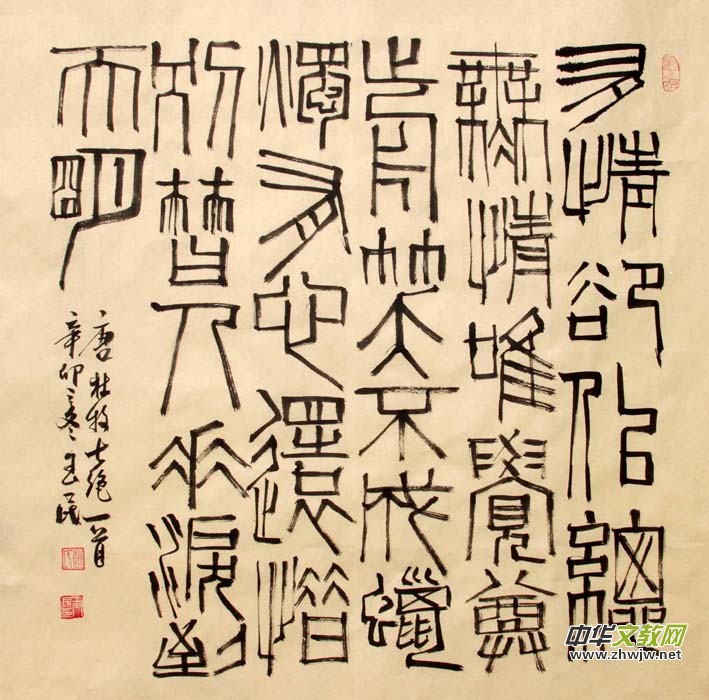 多情卻似總
無情唯覺尊
前笑不成蠟
燭有心還惜
別替人垂淚到
天明
唐杜牧七絕一首
辛卯冬
中华文教网
www.zhwjw.net